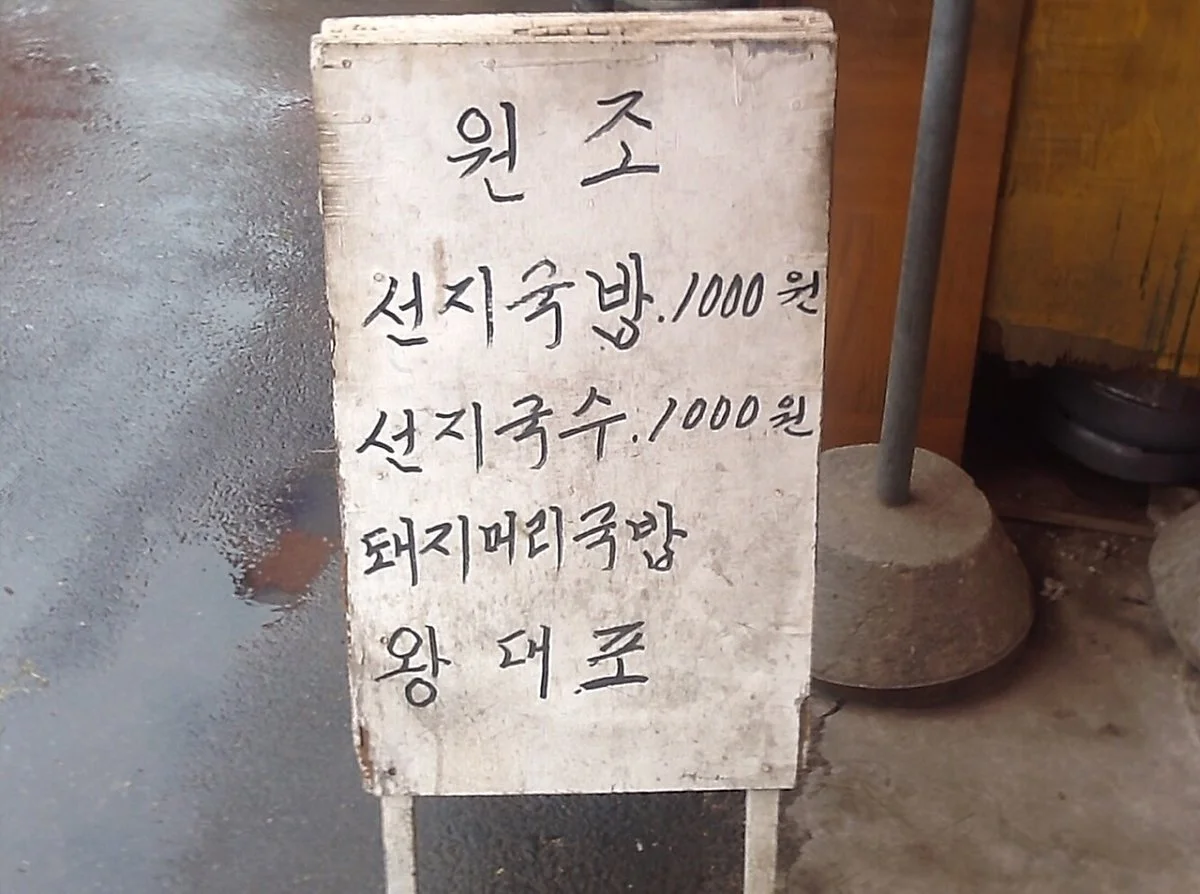 원조
선지국밥.1000원
선지국수.1000원
돼지머리국밥
왕대포